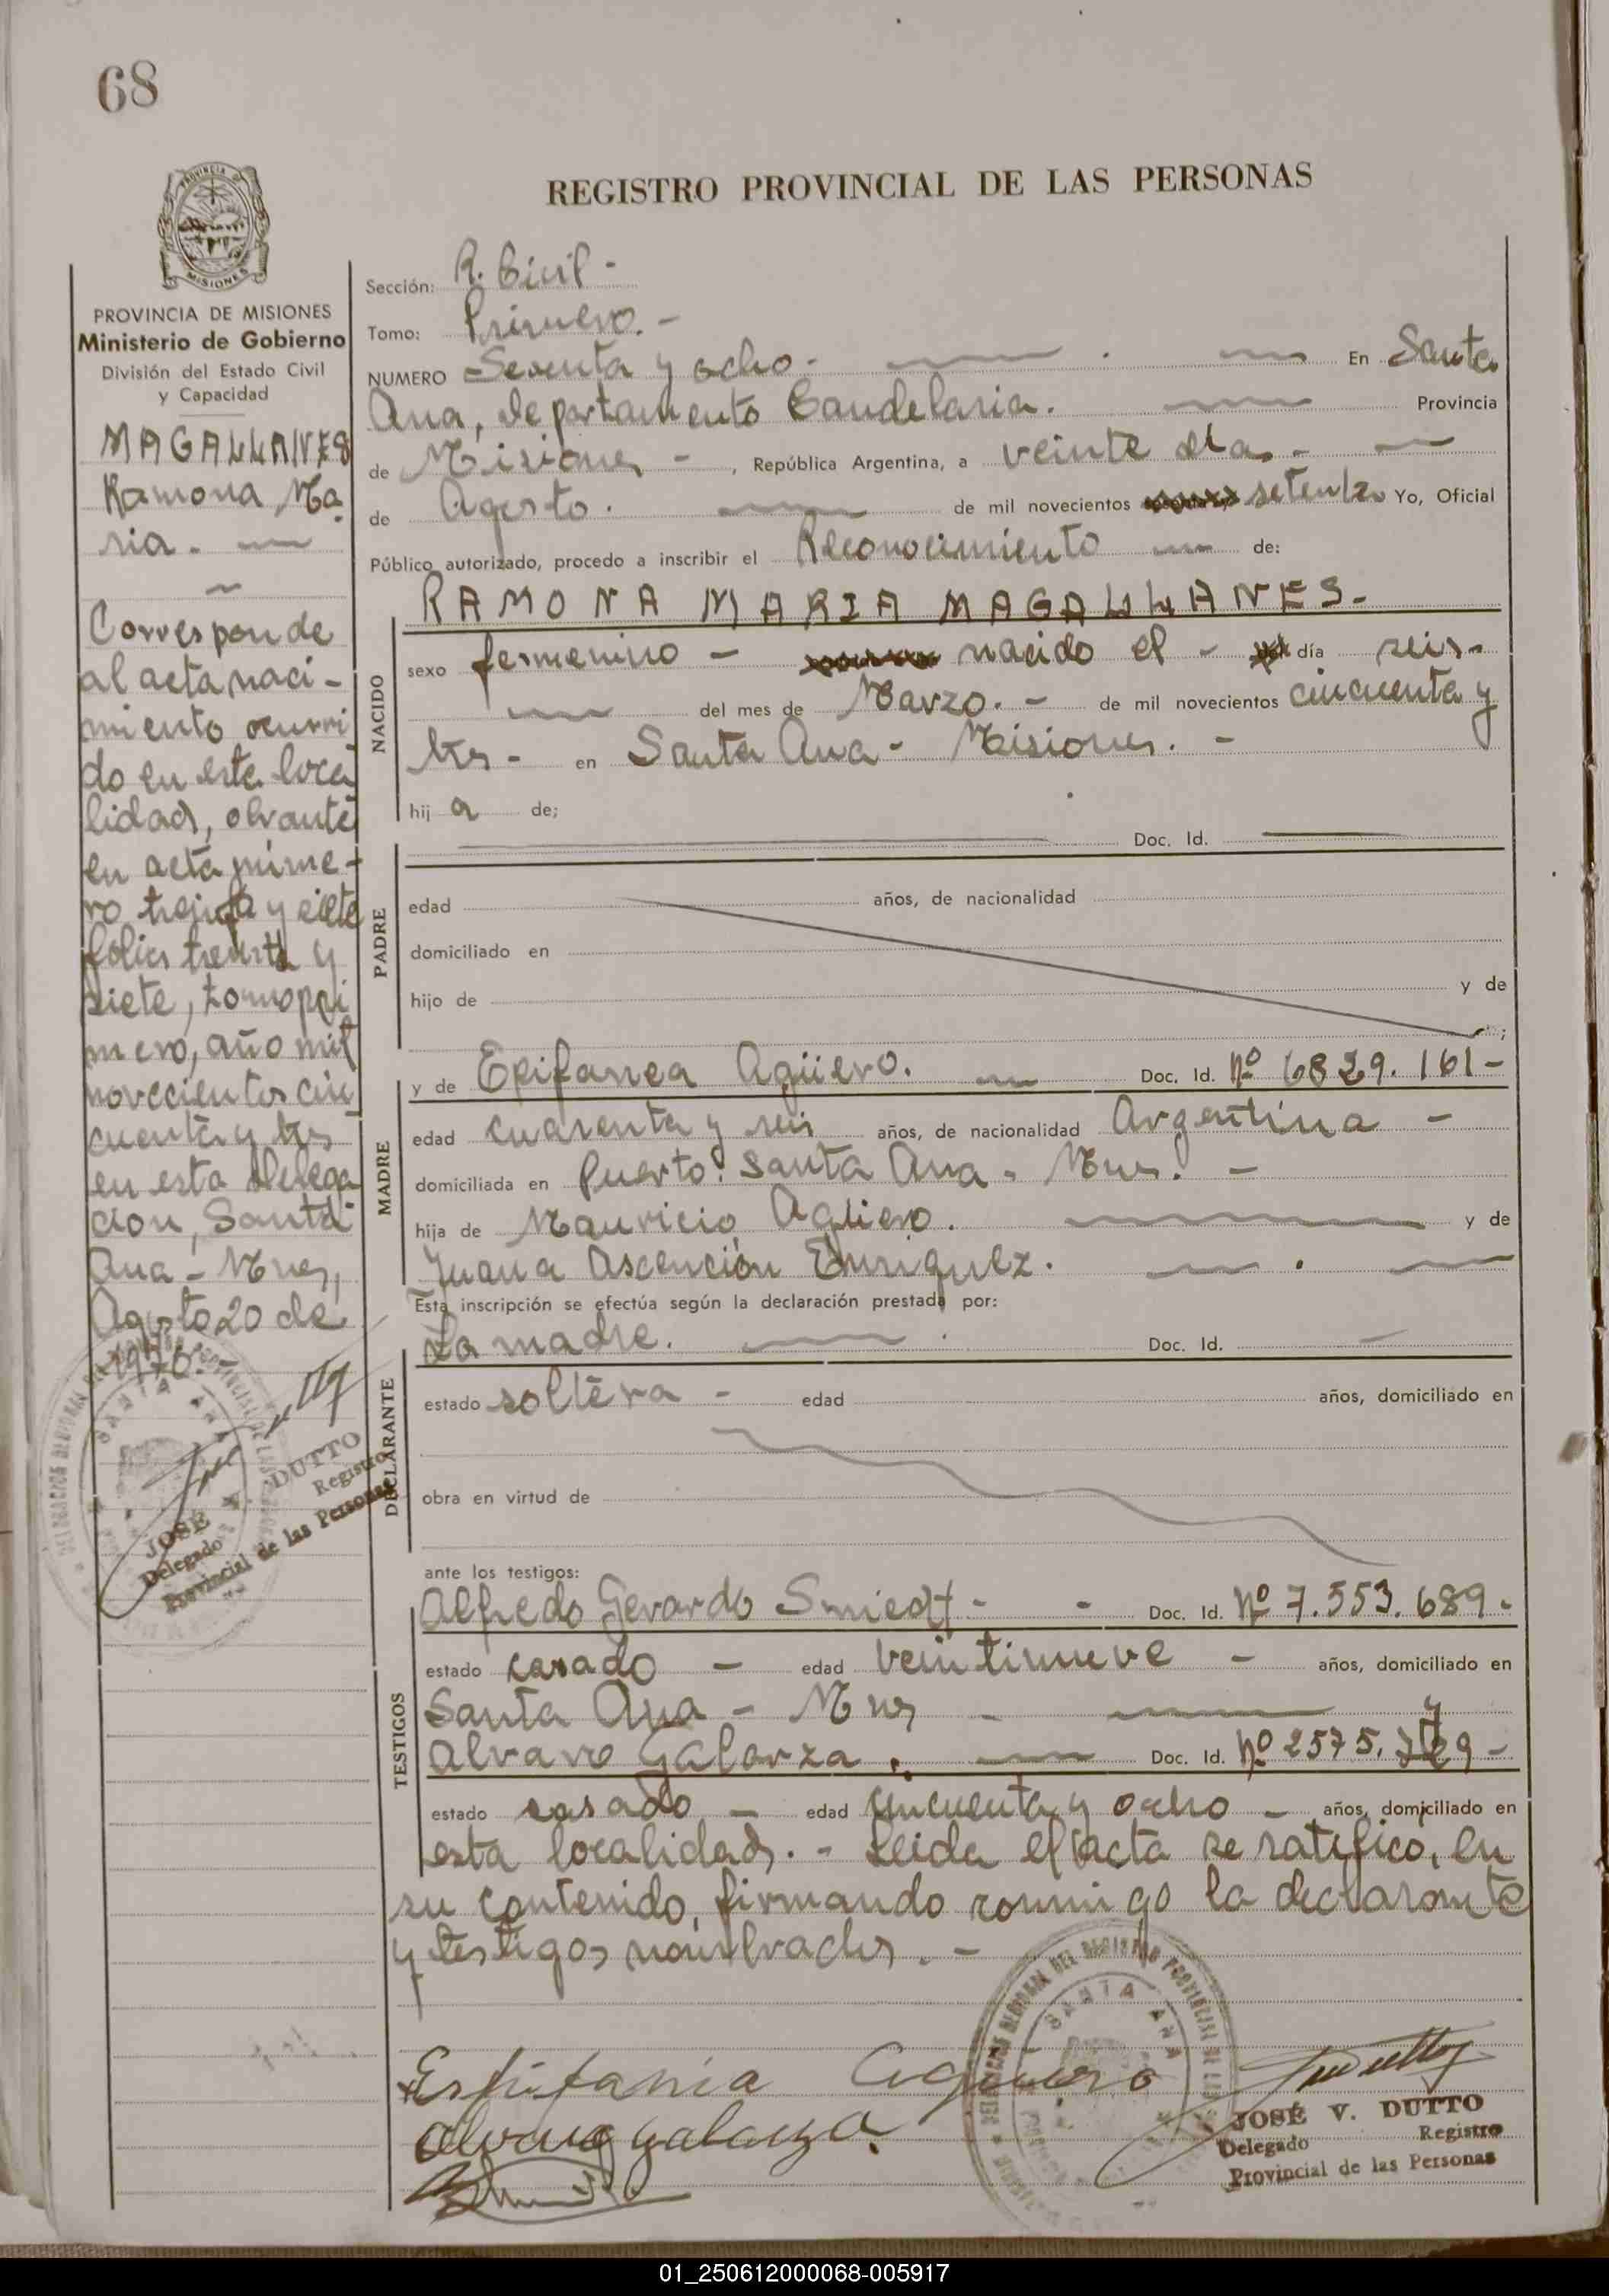 68
REGISTRO PROVINCIAL DE LAS PERSONAS
PROVINCIA DE MISIONES
Ministerio de Gobierno
División del Estado Civil
y Capacidad
MAGALLANES
Ramona Ma
ria. —
Corresponde
al acta naci-
miento ocurri
do en esta loca
lidad, obrante
en acta núme-
ro treinta y siete
folios treinta y
siete, tomo pri
mero, año mil
novecientos cin
cuenta y tres
en esta Delega
cion, Santa
Ana - Mnes,
Agosto 20 de
1970.-
JOSÉ V. DUTTO
Delegado Registro
Provincial de las Personas
Sección: R. Civil -
Tomo: Primero. -
NUMERO Sesenta y ocho - En Santa
Ana, departamento Candelaria. Provincia
de Misiones - , República Argentina, a veinte días -
de Agosto. de mil novecientos setenta Yo, Oficial
Público autorizado, procedo a inscribir el Reconocimiento de:
NACIDO
RAMONA MARIA MAGALLANES.-
sexo femenino - nacido el - día seis -
del mes de Marzo. - de mil novecientos cincuenta y
tres - en Santa Ana - Misiones. -
hij a de;
PADRE
Doc. Id.
edad años, de nacionalidad
domiciliado en
hijo de y de
;
MADRE
y de Epifanea Agüero. Doc. Id. Nº 6829.161-
edad cuarenta y seis años, de nacionalidad Argentina -
domiciliada en Puerto. Santa Ana - Mnes. -
hija de Mauricio Agüero. y de
Juana Ascención Enriquez.
Esta inscripción se efectúa según la declaración prestada por:
DECLARANTE
La madre. Doc. Id.
estado soltera - edad años, domiciliado en
obra en virtud de
ante los testigos:
TESTIGOS
Alfredo Gerardo Smiedt - - Doc. Id. Nº 7.553.689-
estado casado - edad veintinueve - años, domiciliado en
Santa Ana - Mnes - y
Alvaro Galarza. Doc. Id. Nº 2575.
estado casado - edad cincuenta y ocho - años, domiciliado en
esta localidad. - Leida el acta se ratifico, en
su contenido, firmando conmigo la declarante
y testigos nombrados. -
Espifania Agüero
Alvaro Galarza
SANTA ANA
JOSÉ V. DUTTO
Delegado Registro
Provincial de las Personas
01_250612000068-005917